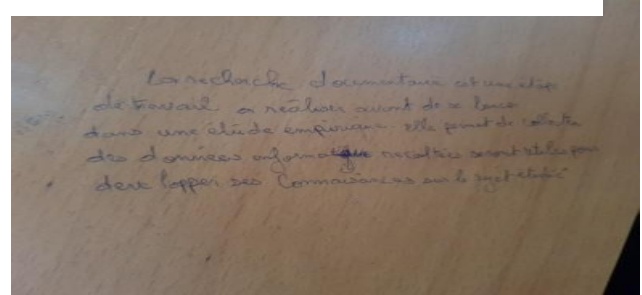 La recherche documentaire est une étape
de travail a réaliser avant de se lancer
dans une étude empirique. Elle permet de collecter
des données informatique recoltées seront utiles pour
developper ses Connaissances sur le sujet étudié